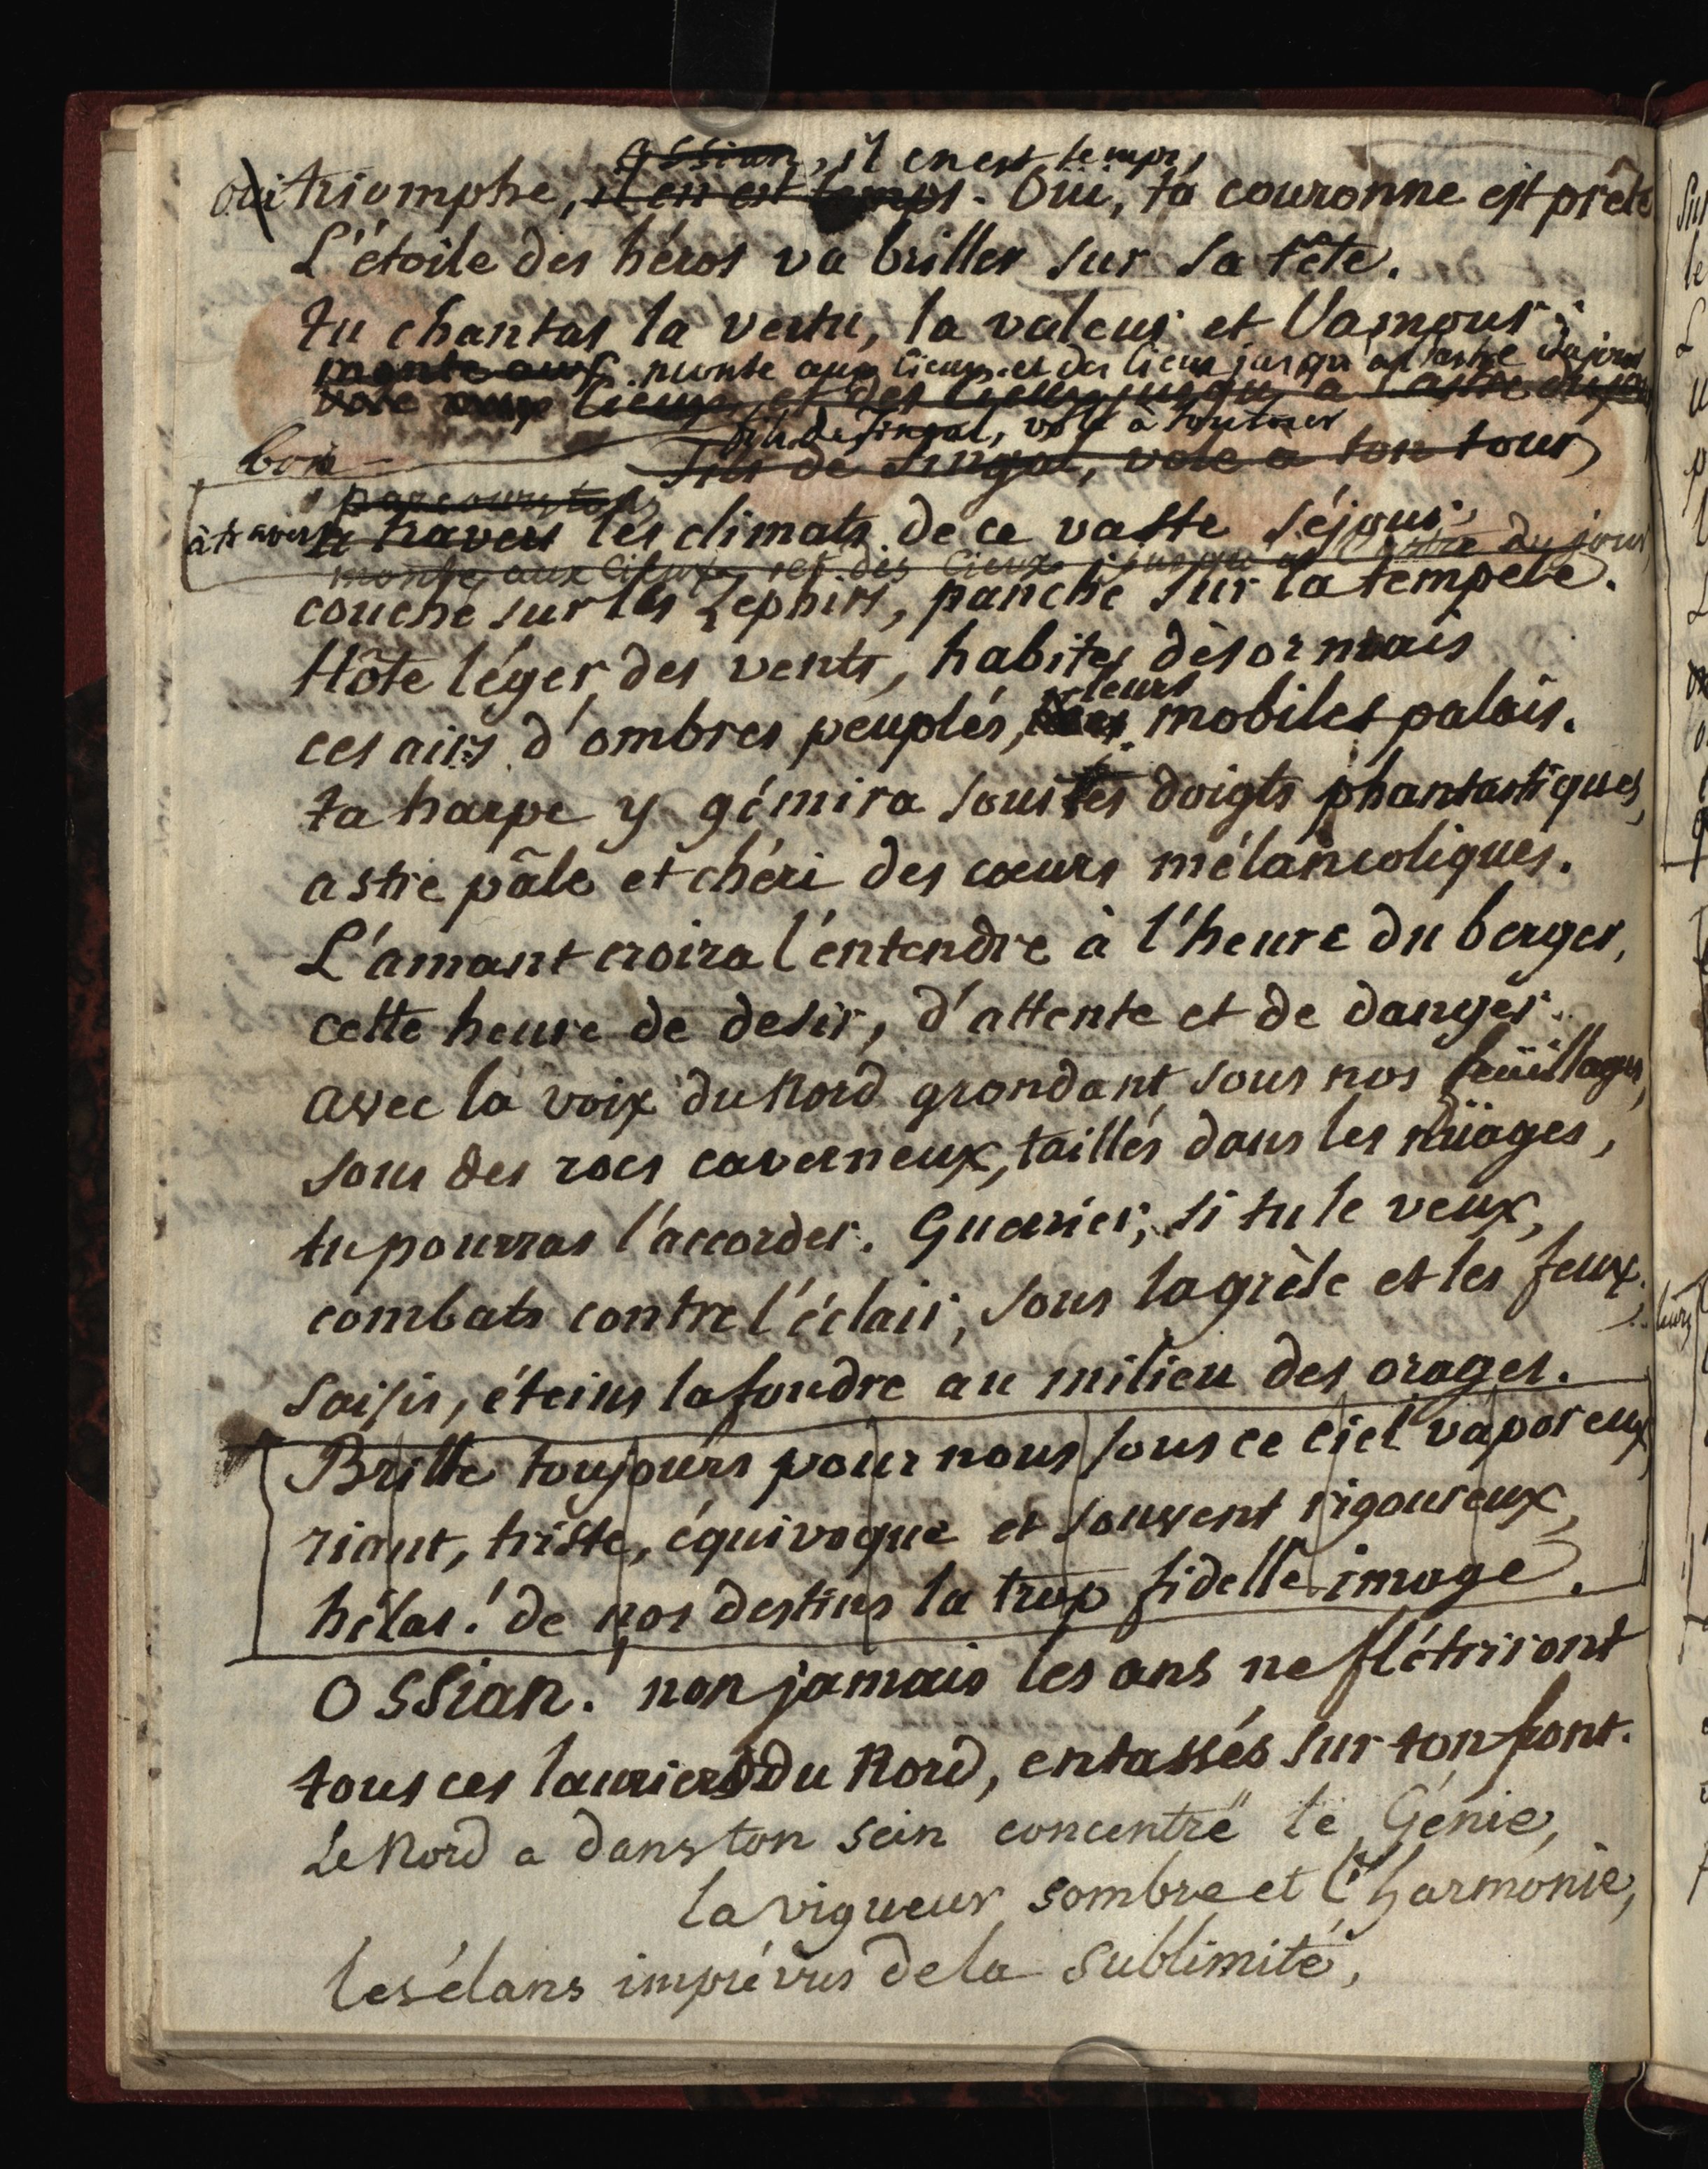 Ossian, il en est temps,
oui triomphe, il en est temps. Oui, ta couronne est prête
L'étoile des héros va briller sur sa tête.
tu chantas la vertu, la valeur et l'amour;
monte aux monte aux cieux, et des cieux jusqu'à l'astre du jour
vole aux cieux, et des cieux jusqu'à l'astre du jour
fils de Fingal, vole à ton tour
bon fils de Fingal, vole à ton tour
parcours
à travers à travers les climats de ce vaste séjour,
monte aux cieux, et des cieux jusqu'à l'astre du jour
couché sur les Zephirs, panché sur la tempête.
Hôte léger des vents, habites désormais
leurs
ces airs d'ombres peuplés, mobiles palais.
ta harpe y gémira sous tes doigts phantastiques,
astre pâle et chéri des cœurs mélancoliques.
L'amant croira l'entendre à l'heure du berger,
cette heure de desir, d'attente et de danger.
avec la voix du Nord grondant sous nos feüillages,
sous des rocs caverneux, taillés dans les nüages,
tu pourras l'accorder. Guerrier, si tu le veux,
combats contre l'éclair, sous la grèle et les feux.
saisis, éteins la foudre au milieu des orages.
Brille toujours pour nous sous ce ciel vaporeux
riant, triste, équivoque et souvent rigoureux,
hélas! de nos destins la trop fidelle image.
Ossian! non jamais les ans ne flétriront
tous ces lauriers du Nord, entassés sur ton front.
Le Nord a dans ton sein concentré le Génie,
la vigueur sombre et l'harmonie,
les élans imprévus de la sublimité,